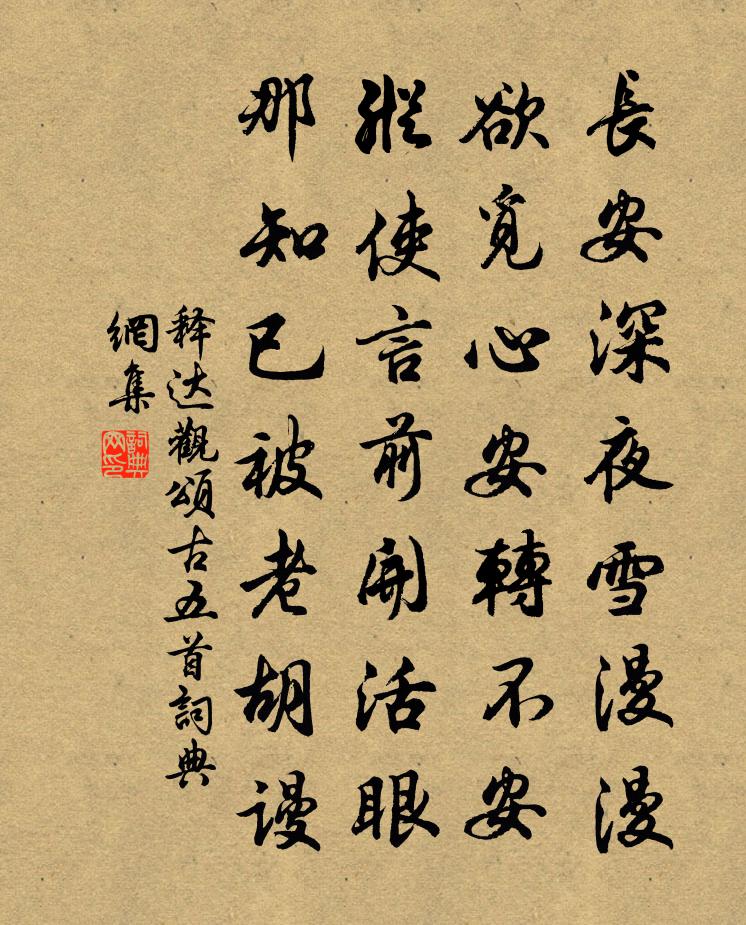 長安深夜雪漫漫
欲覓心安轉不安
縱使言前開活眼
那知已被老胡谩
释达觀頌古五首詞典
網集
詞典
网印